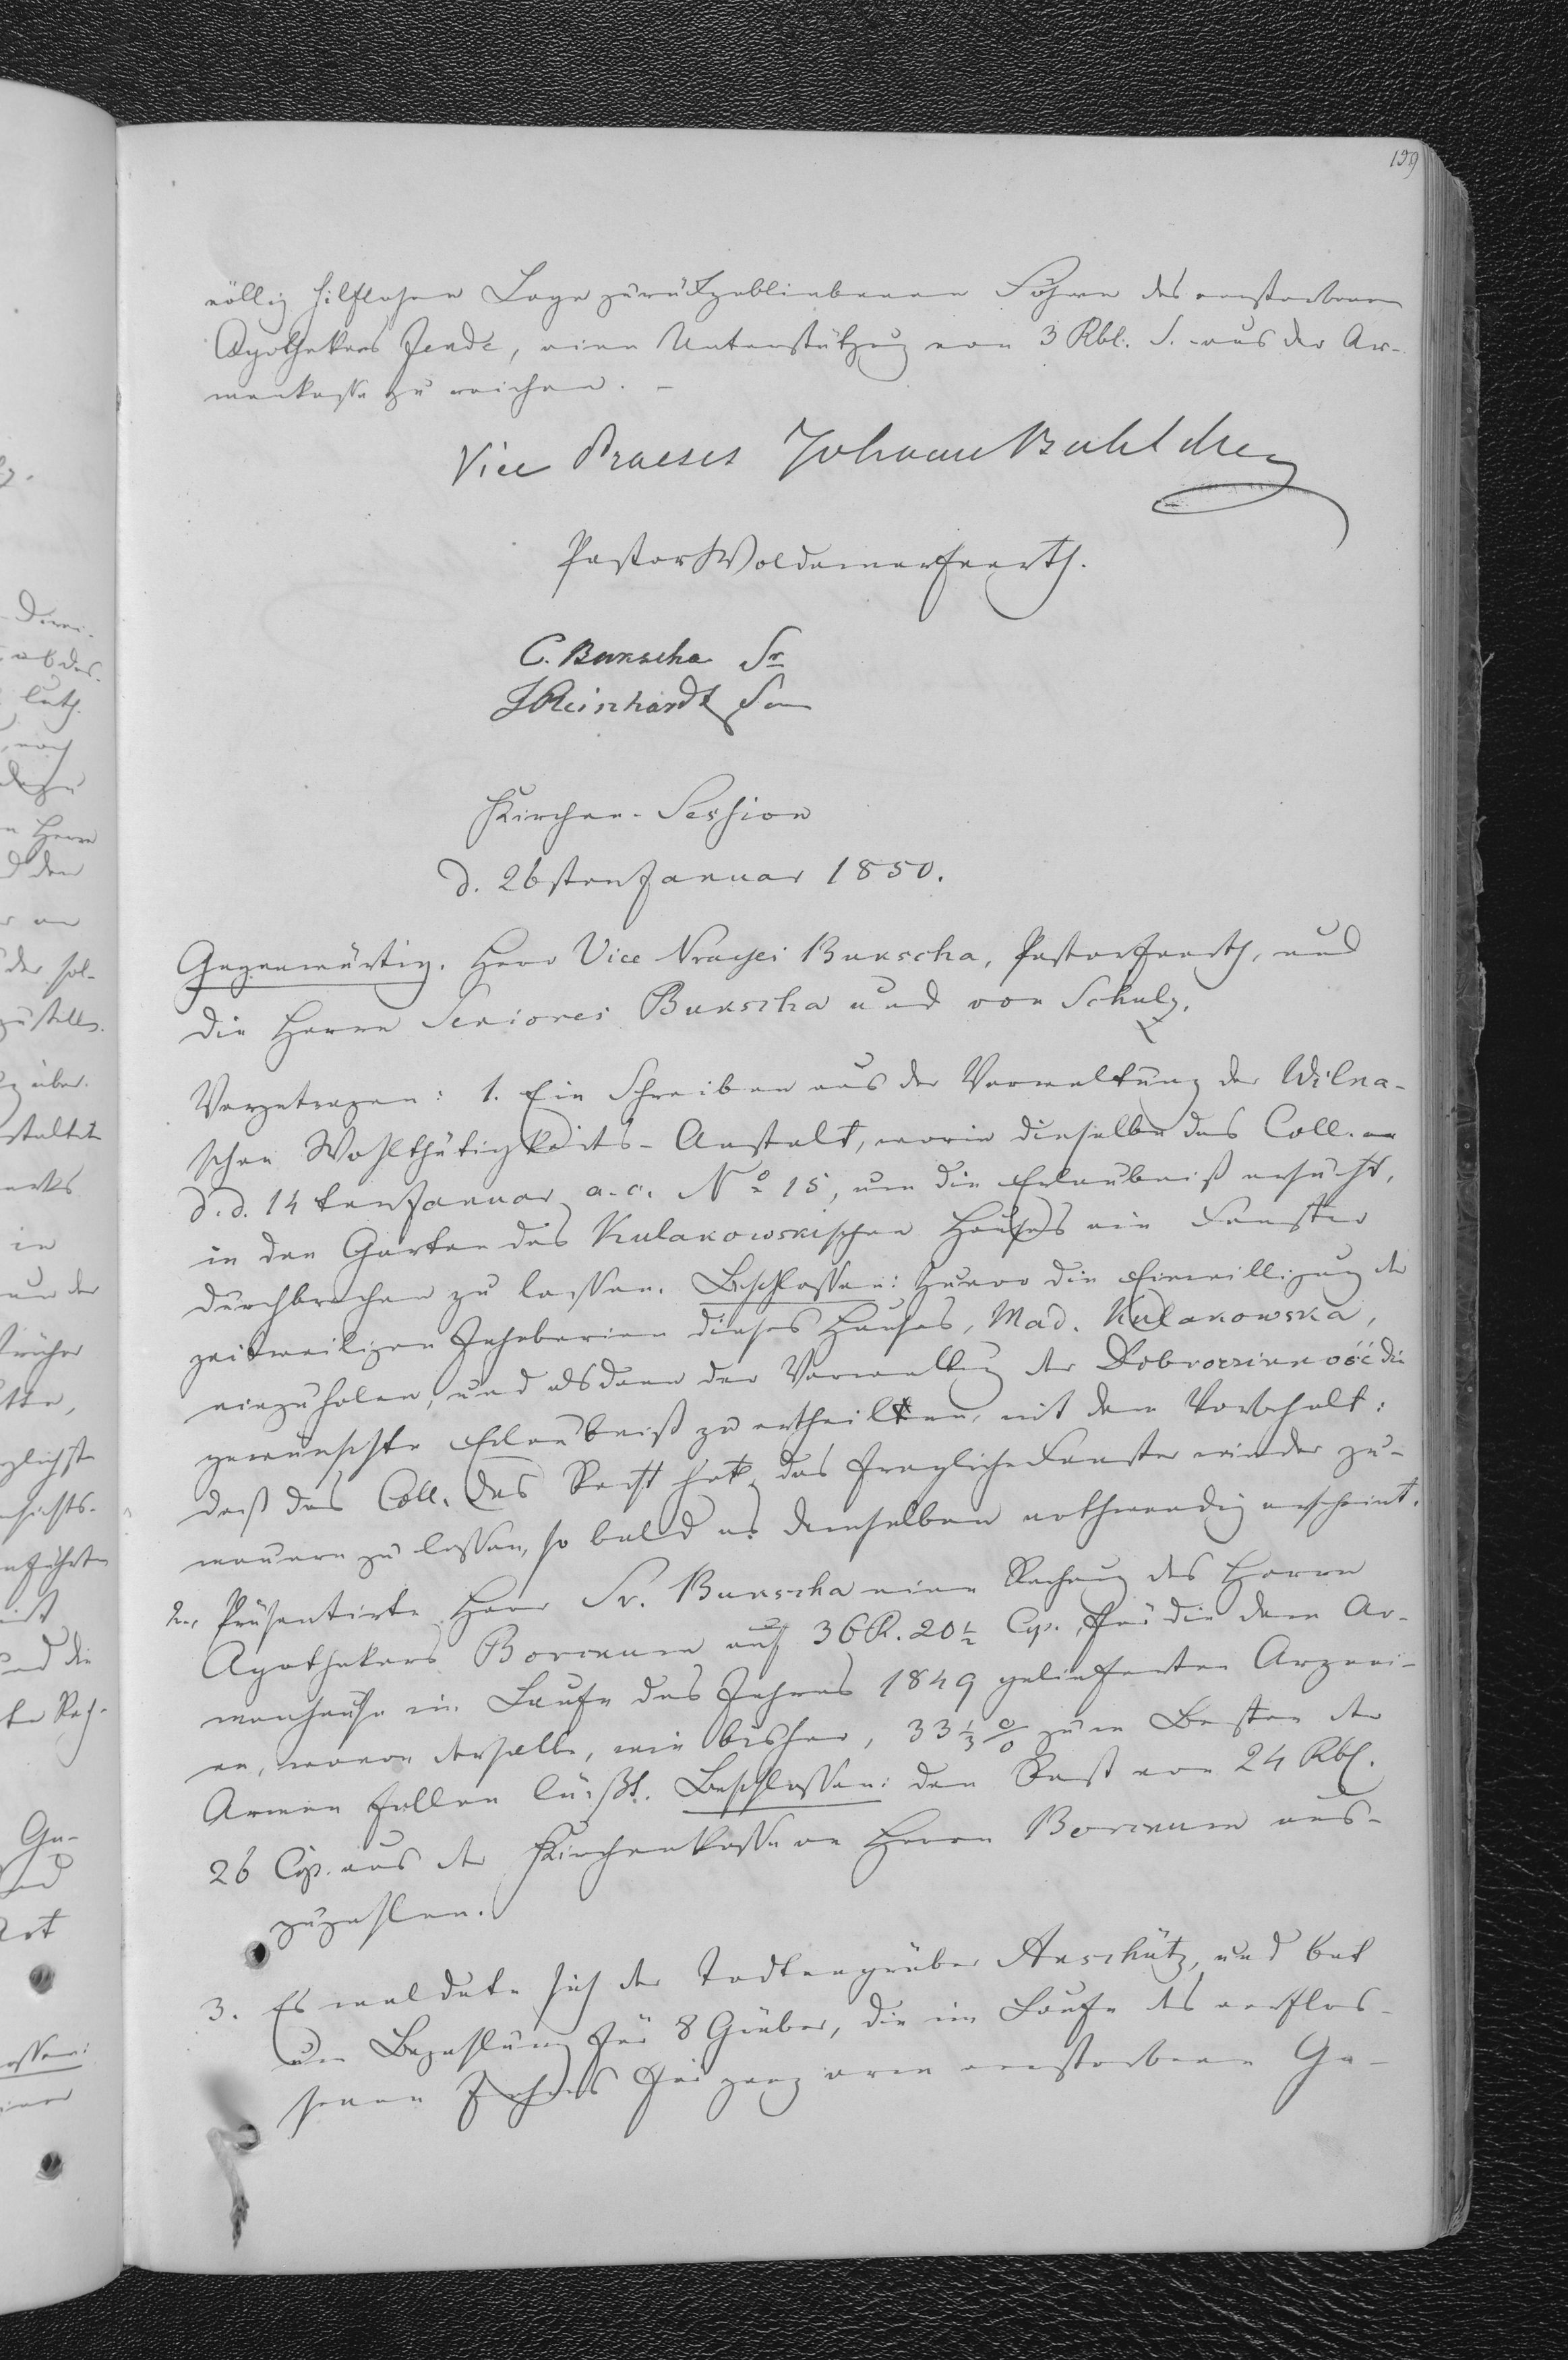 199
völlig hilflosen Lage zurückgebliebenen Sohne des verstorbenen
Apothekers Jendé, eine Unterstützug von 3 Rbl. S. aus der Ar-
menkasse zu reichen. –
Vice Praeses Johann
Pastor Woldemar
C. Bunscha Sr
J Reinhardt Sen
Kirchen-Session
d. 26sten Januar 1850.
Gegenwärtig. Herr Vice Bunscha, Pastor und
die Herrn Seniores Bunscha und von Schulz.
Vorgetragen: 1. Ein Schreiben aus der Verwaltung der Wilna-
schen Wohlthätigkeits-Anstalt, worin dieselbe das Coll.
d. d. 14 ten Januar a. c. No 15, um die Erlaubniß ersucht,
in den Garten des Kulakowskischen Hauses ein Fenster
durchbrechen zu lassen. Beschlossen: zuvor die Einwilligung der
zeitweiligen Inhaberinn dieses Hauses, Mad. Kulakowska,
einzuholen, und alsdann der Verwaltug der Dobroczinność die
gewünschte Erlaubniß zu ertheilen, mit dem Vorbehalt:
daß das Coll. das Recht hat, das fragliche Fenster wieder zu-
mauern zu lassen, so bald es demselben nothwendig erscheint.
2., Präsentirte Herr Sr. Bunscha eine Rechnug des Herrn
Apothekers Borckum auf 36 R. 20 1/2 Cop. für die dem Ar-
menhause im Laufe des Jahres 1849 gelieferten Arznei-
en, wovon derselbe, wie bisher, 33 1/3 % zum Besten der
Armen fallen läßt. Beschlossen: den Rest von 24 Rbl.
26 Cop. aus der Kirchenkasse an Herrn Borckum aus-
zuzahlen.
3. Es meldete sich der Todtengräber Anschütz, und bat
um Bezahlung für 8 Gräber, die im Laufe des verflos-
senen Jahres für ganz arm verstorbene Ge-